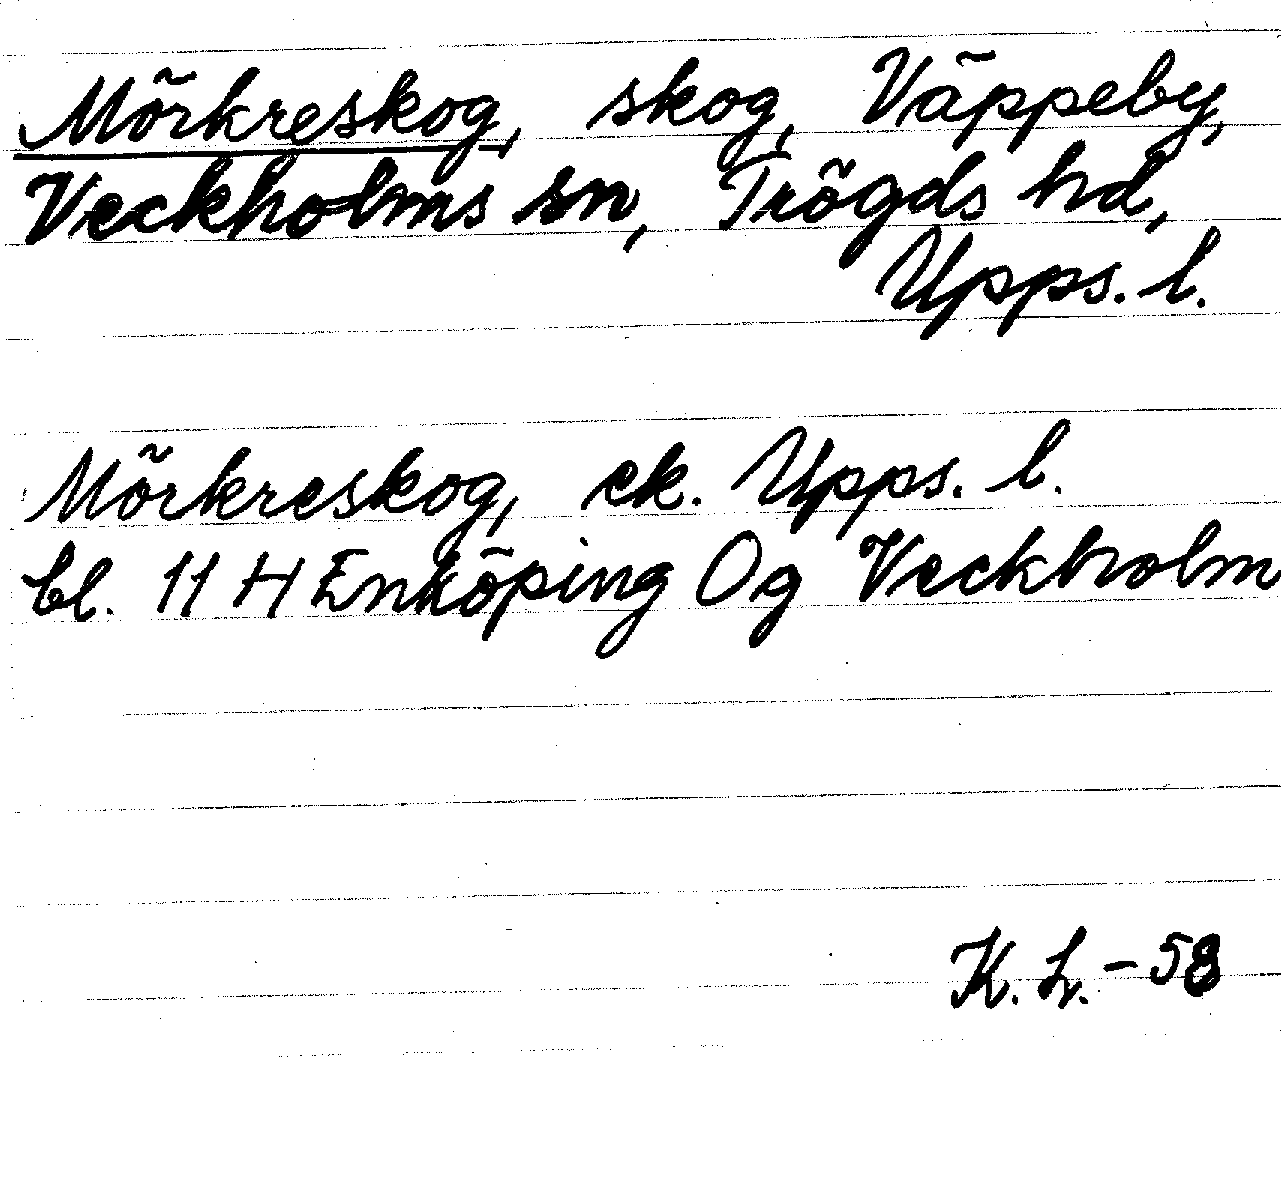 Mörkreskog, skog, Väppeby,
Veckholms sn, Trögds hd,
Upps. l.
Mörkreskog, ek. Upps. l.
bl. 11 H Enköping Og Veckholm
K. L. - 58